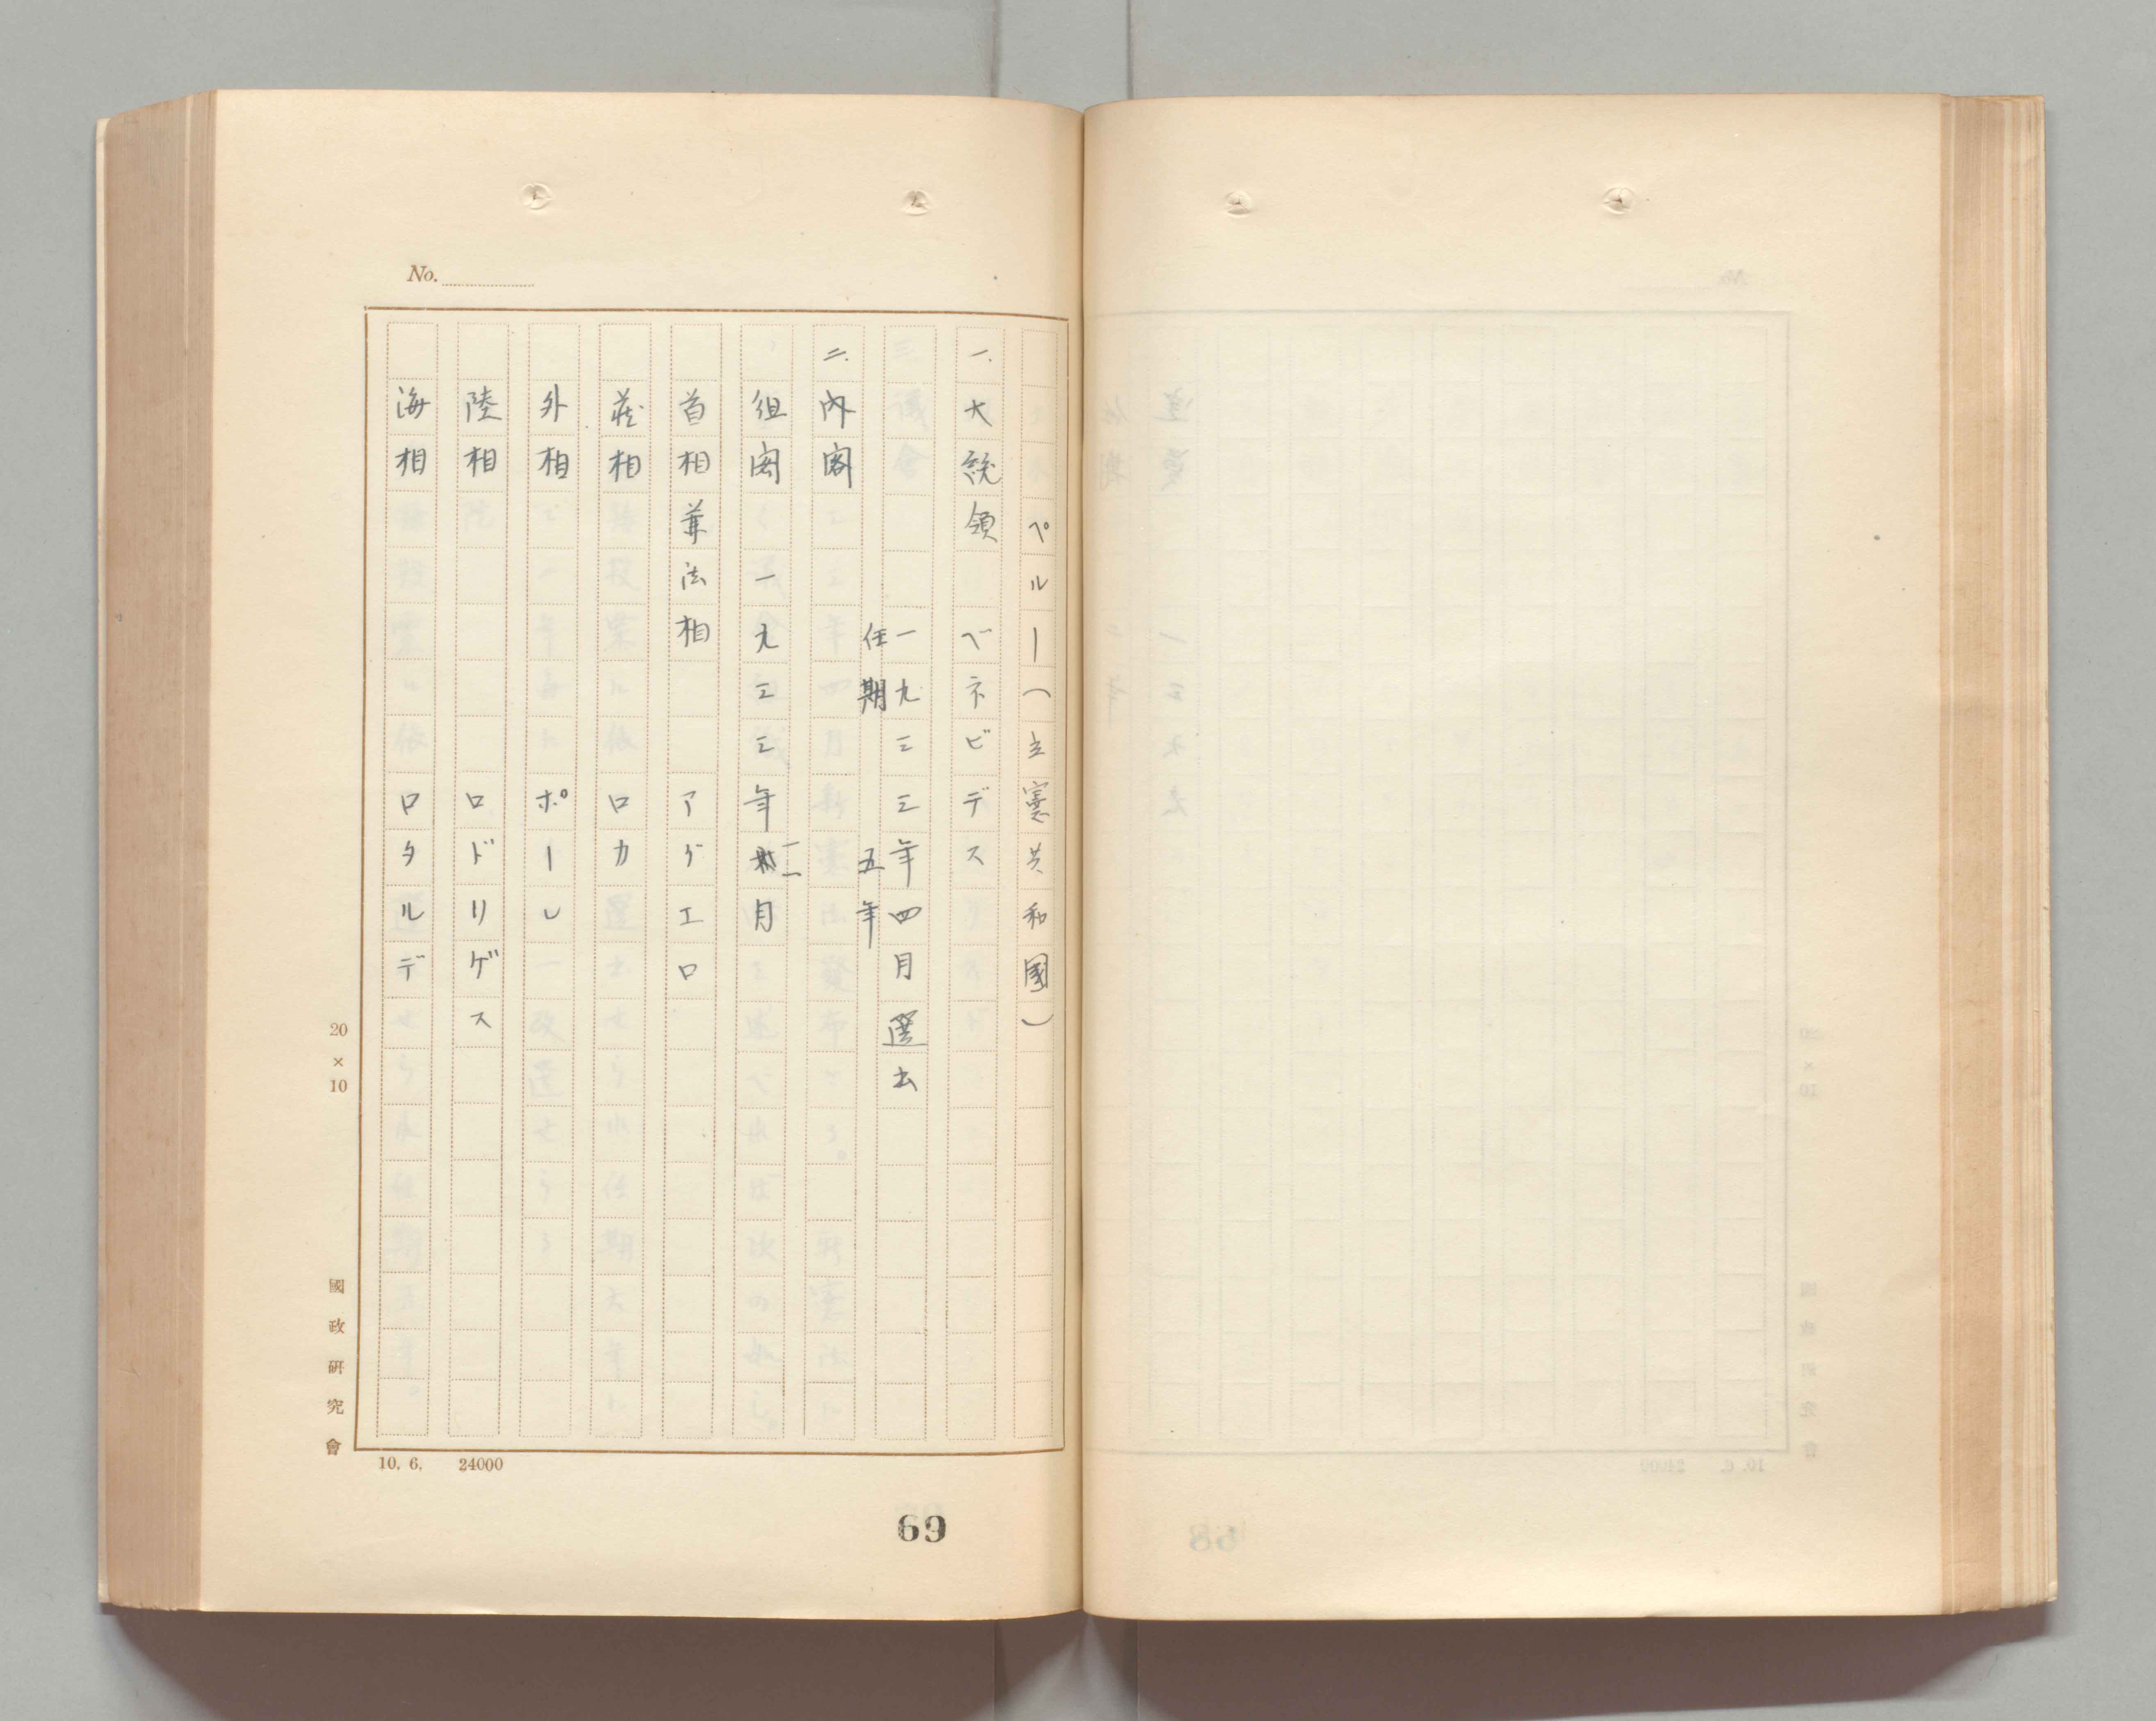 No.
ペルー(立憲共和國)
一.大統領 ベネビデス
一九三三年四月選出
任期 五年
二.内閣
組閣 一九三三年一一月
首相兼法相 アゲエロ
蔵相 ロカ
外相 ポーレ
陸相 ロドリゲス
海相 ロタルデ
20×10
國政研究會
10. 6. 24000
69